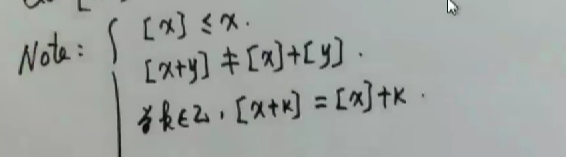 Note: { [x] ≤ x.
[x+y] ≠ [x]+[y].
若k∈Z, [x+k] = [x]+k.